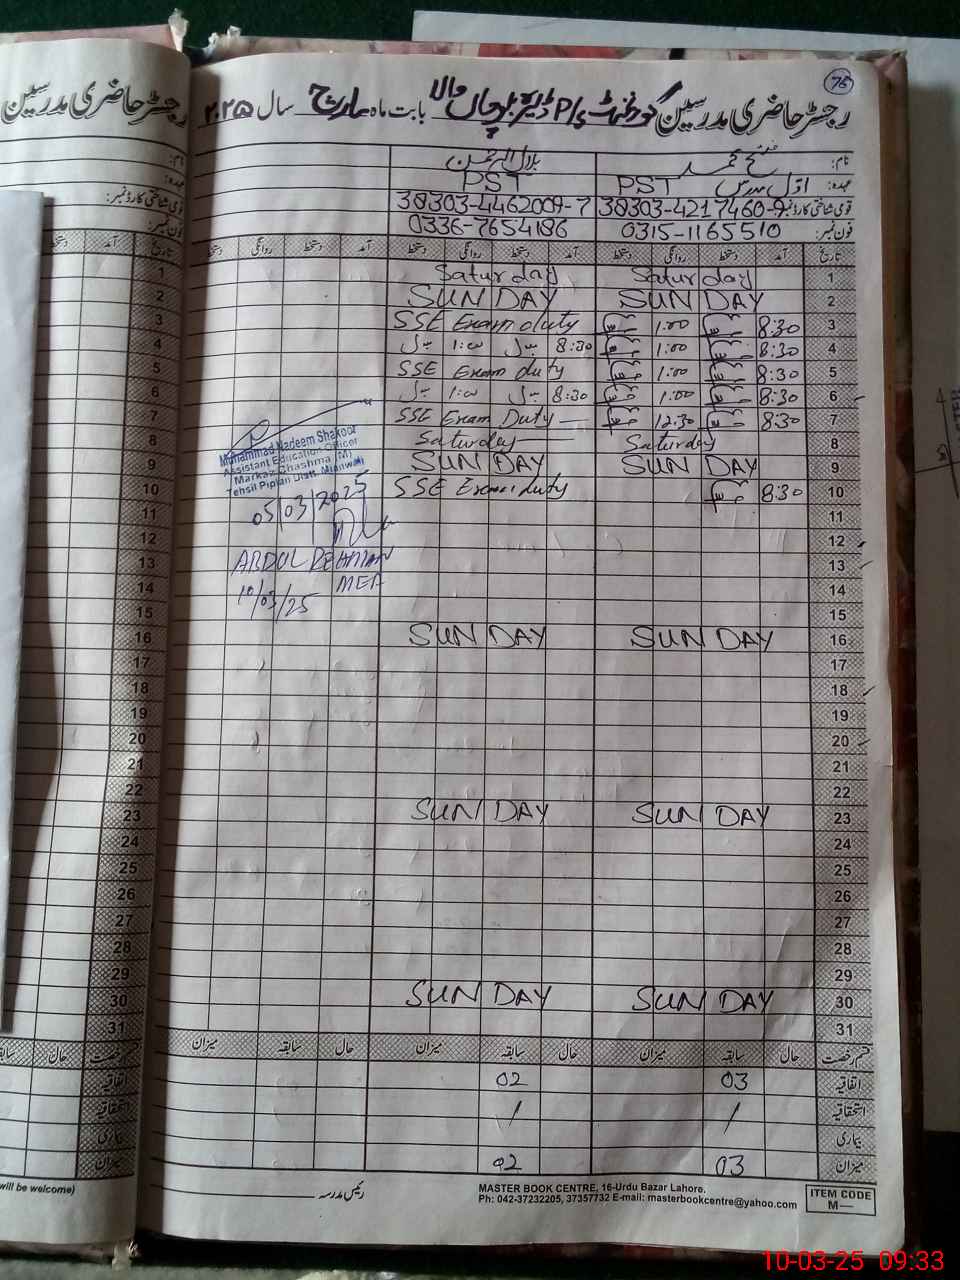 76
رجسٹر حاضری مدرسین گورنمنٹ P/S ڈیرہ بلوچاں والا بابت ماہ مارچ سال ۲۰۲۵
رجسٹر حاضری مدرسین
نام: فتح محمد
عہدہ: اوّل مدرس PST PST
قومی شناختی کارڈ نمبر: 38303-4217460-9 38303-4462009-7
فون نمبر: 0315-1165510 0336-7654186
تاریخ آمد دستخط روانگی دستخط آمد دستخط روانگی دستخط آمد دستخط روانگی دستخط
1 Saturday Saturday
2 SUN DAY SUN DAY
3 8:30 1:00 SSE Exam duty
4 8:30 1:00 8:30 1:00
5 8:30 1:00 SSE Exam duty
6 8:30 1:00 8:30 1:00
7 8:30 12:30 SSE Exam Duty
8 Saturday Saturday
9 SUN DAY SUN DAY
10 8:30 SSE Exam duty
11
12
13
14
15
16 SUN DAY SUN DAY
17
18
19
20
21
22
23 SUN DAY SUN DAY
24
25
26
27
28
29
30 SUN DAY SUN DAY
31
Muhammad Nadeem Shakoor
Assistant Education Officer
Markaz Chashma (M)
Tehsil Piplan Distt. Mianwali
05/03/2025
ABDUL REHMAN
MEA
10/03/25
قسم رخصت حال سابقہ میزان حال سابقہ میزان حال سابقہ میزان
اتفاقیہ 03 02
استحقاقیہ / /
بیماری
میزان 03 02
رئیس مدرسہ
will be welcome)
MASTER BOOK CENTRE, 16-Urdu Bazar Lahore.
Ph: 042-37232205, 37357732 E-mail: masterbookcentre@yahoo.com
ITEM CODE
M—
10-03-25 09:33